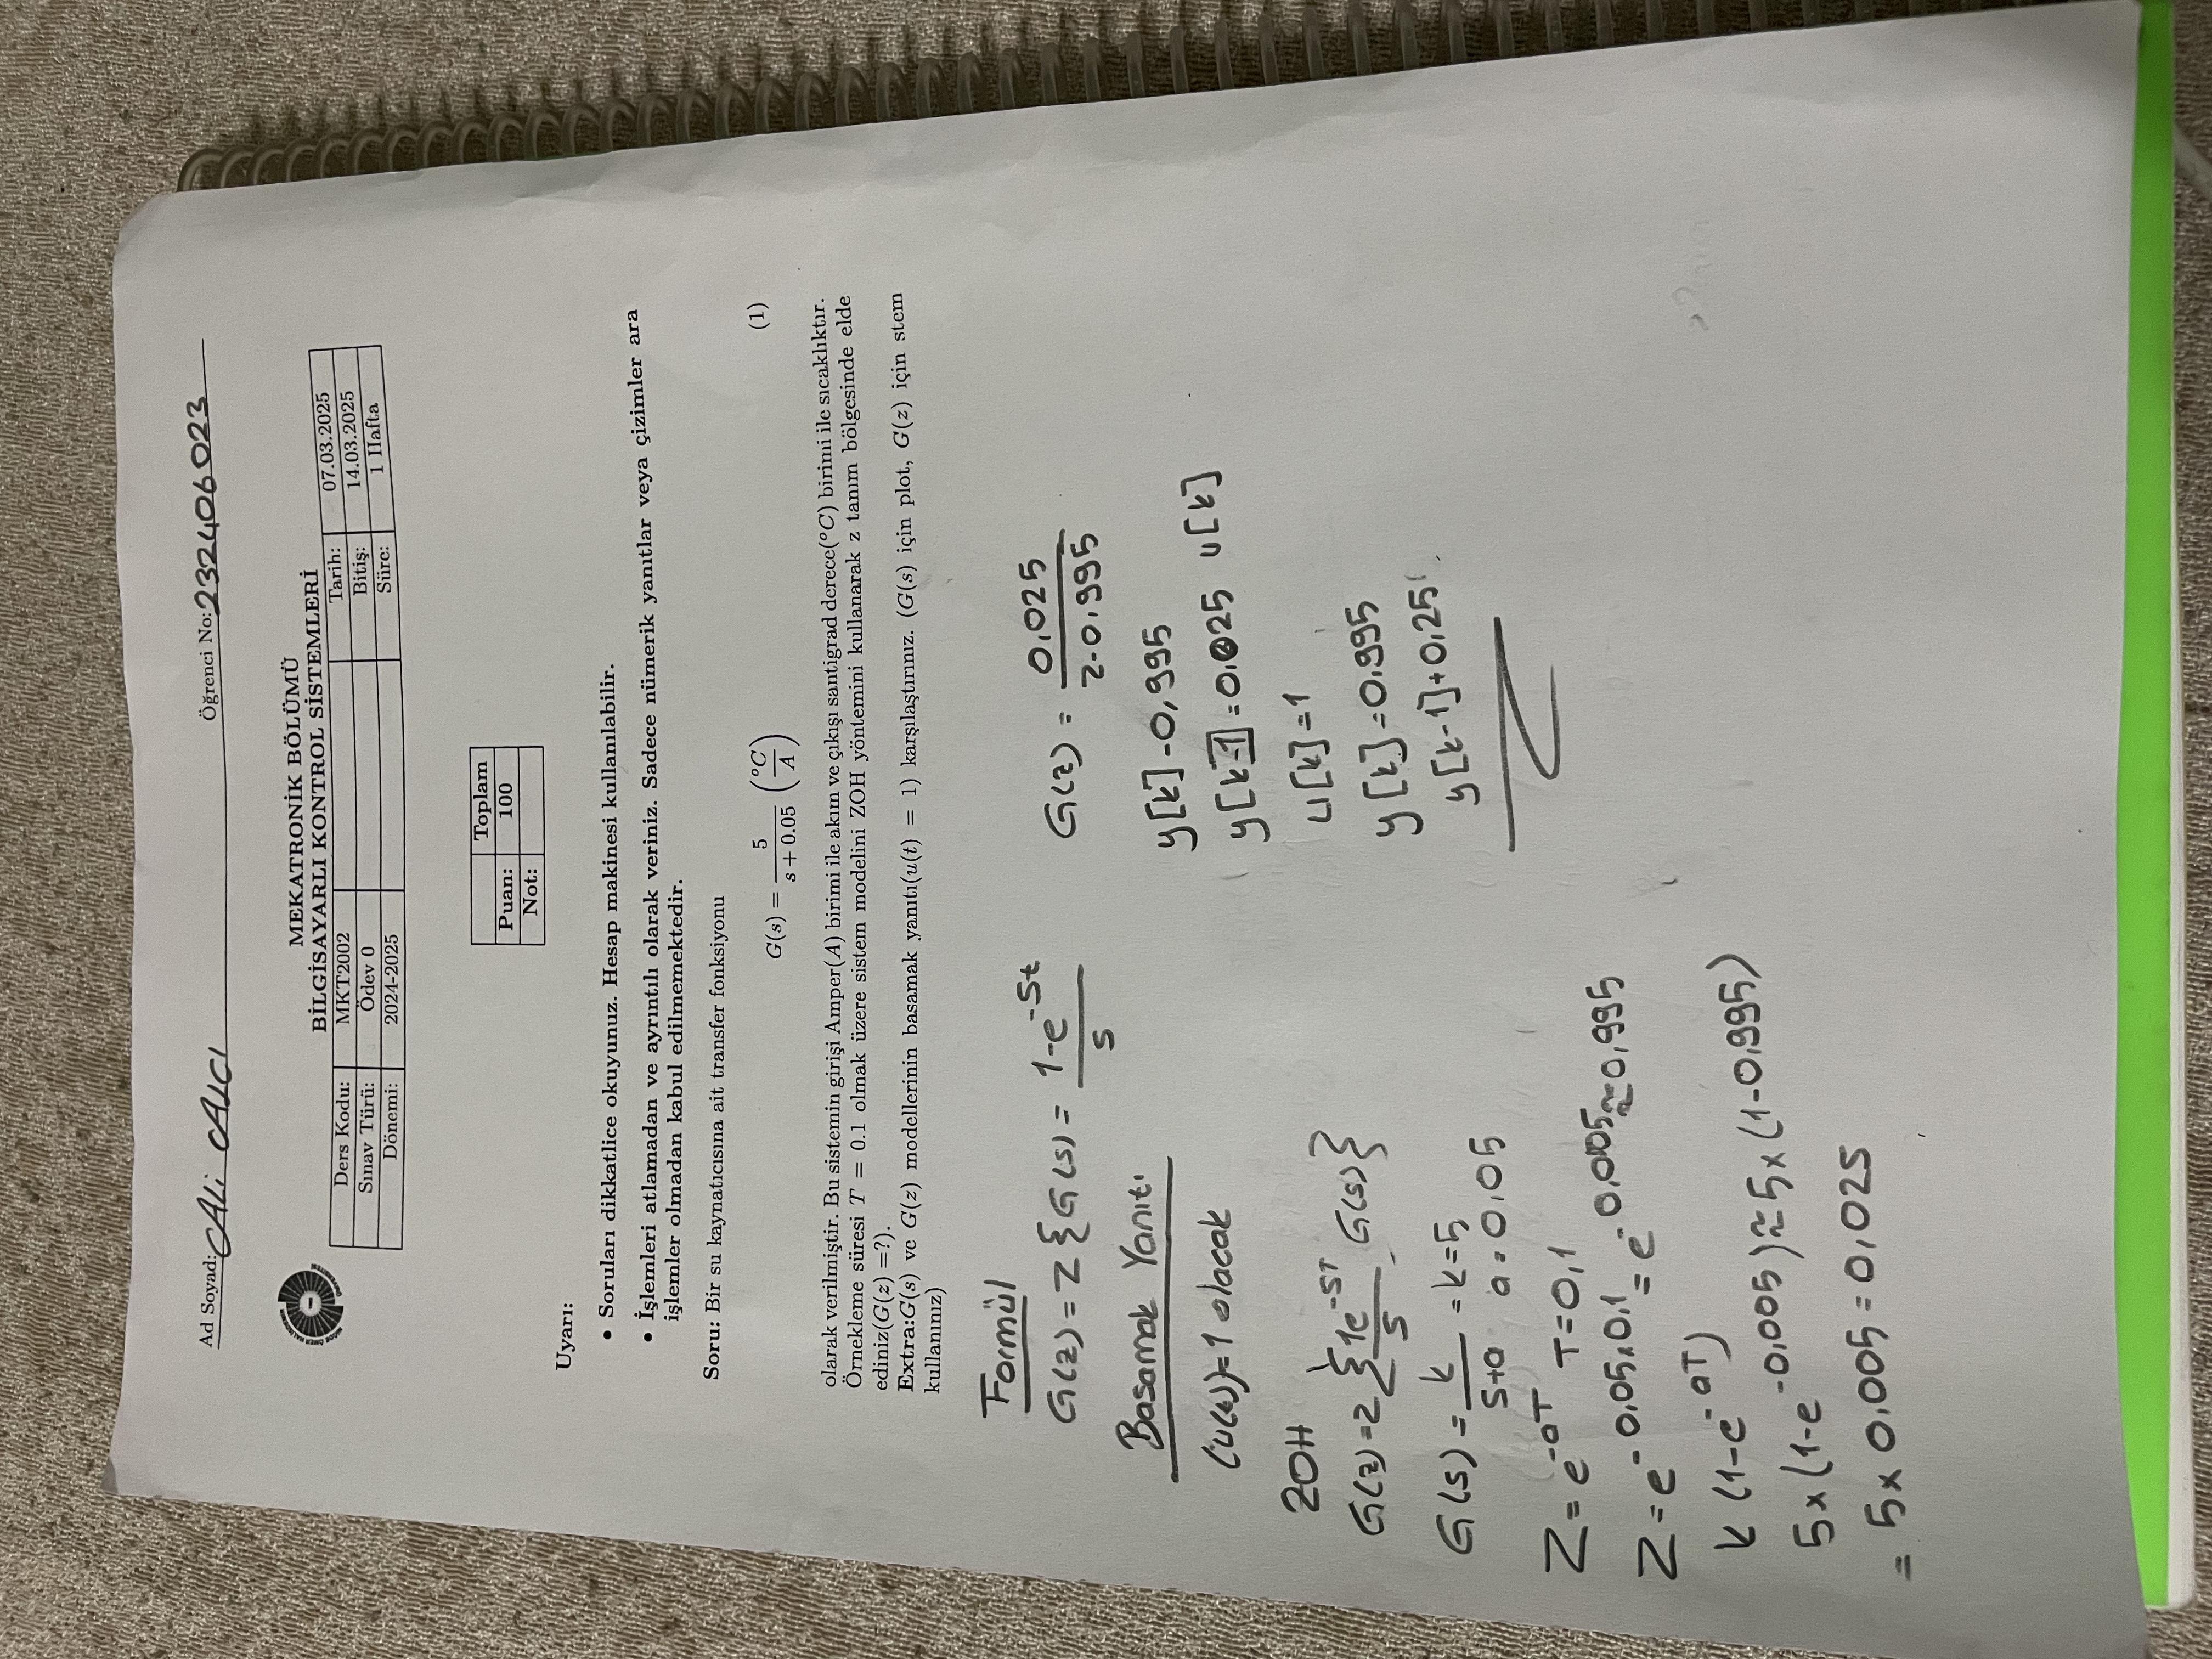 Ad Soyad: Ali ALCI Öğrenci No: 232406023
MEKATRONİK BÖLÜMÜ
BİLGİSAYARLI KONTROL SİSTEMLERİ
Ders Kodu: MKT2002 Tarih: 07.03.2025
Sınav Türü: Ödev 0 Bitiş: 14.03.2025
Dönemi: 2024-2025 Süre: 1 Hafta
Toplam
Puan: 100
Not:
Uyarı:
• Soruları dikkatlice okuyunuz. Hesap makinesi kullanılabilir.
• İşlemleri atlamadan ve ayrıntılı olarak veriniz. Sadece nümerik yanıtlar veya çizimler ara
işlemler olmadan kabul edilmemektedir.
Soru: Bir su kaynatıcısına ait transfer fonksiyonu
G(s) = 5 / (s + 0.05) (°C / A) (1)
olarak verilmiştir. Bu sistemin girişi Amper(A) birimi ile akım ve çıkışı santigrad derece(°C) birimi ile sıcaklıktır.
Örnekleme süresi T = 0.1 olmak üzere sistem modelini ZOH yöntemini kullanarak z tanım bölgesinde elde
ediniz(G(z) =?).
Extra:G(s) ve G(z) modellerinin basamak yanıtı(u(t) = 1) karşılaştırınız. (G(s) için plot, G(z) için stem
kullanınız)
Formül
G(z) = Z { G(s) = 1-e^-St / S
Basamak Yanıtı
(u(t))=1 olacak
ZOH
G(z) = z { 1e^-ST / S G(s) }
G(s) = k / S+a = k=5
a = 0,05
Z = e^-aT T=0,1
Z = e^-0,05x0,1 = e^-0,005 ≈ 0,995
k (1-e^-aT)
5x(1-e^-0,005) ≈ 5x(1-0,995)
= 5x 0,005 = 0,025
G(z) = 0,025 / z-0,995
y[k]-0,995
y[k-1]=0,025 u[k]
u[k]=1
y[k]=0,995
y[k-1]+0,25